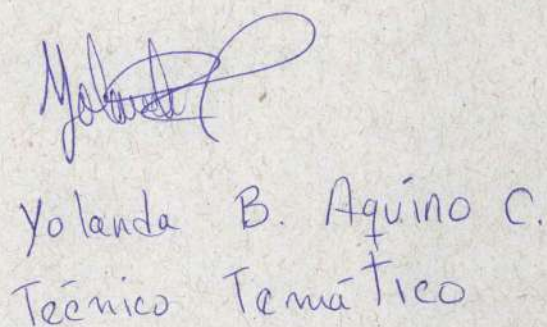 Yolanda
Yolanda B. Aquino C.
Técnico Temático